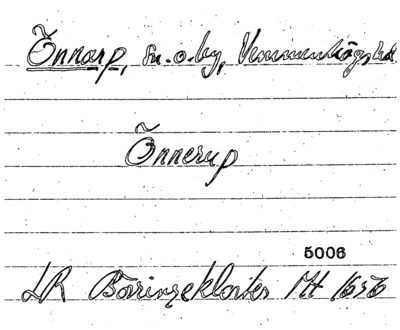 Önnarp, sn. o. by, Vemmenhögs hd
Önnerup
5006
LR Börringekloster Mt 1656